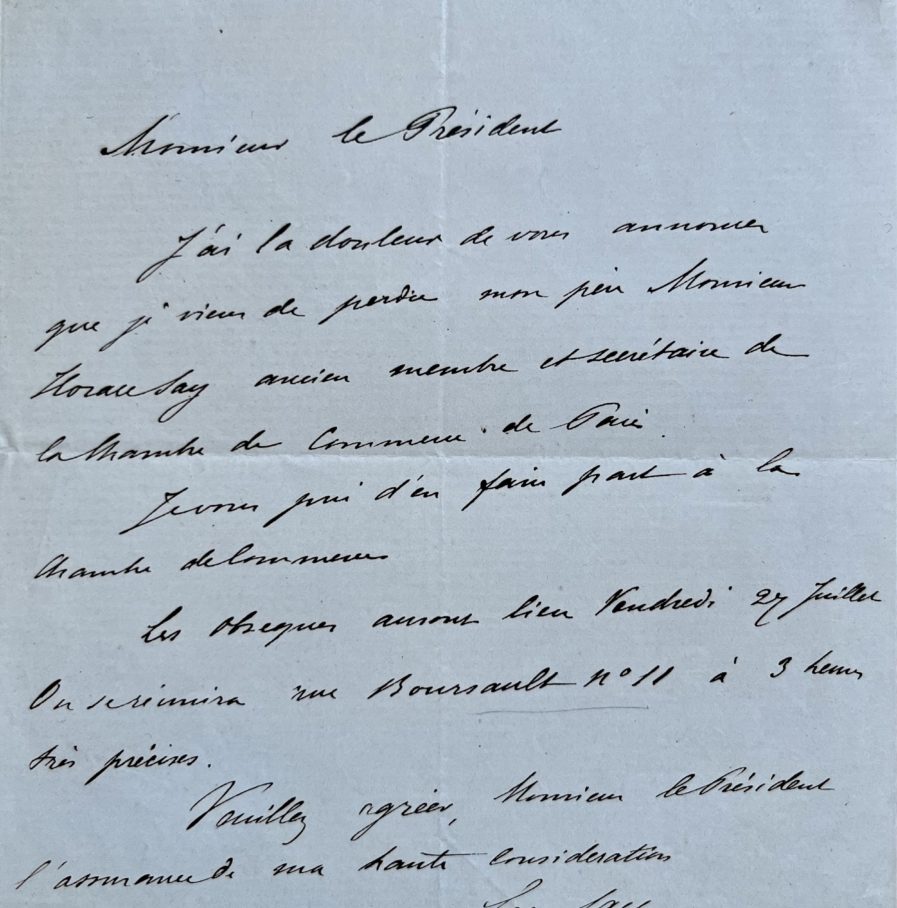 Monsieur le Président
J'ai la douleur de vous annoncer
que je viens de perdre mon père Monsieur
Horace Say ancien membre et secrétaire de
la Chambre de Commerce de Paris.
Je vous prie d'en faire part à la
Chambre de Commerce
Les obsèques auront lieu Vendredi 27 Juillet
On se réunira rue Boursault n° 11 à 3 heures
très précises.
Veuillez agréer, Monsieur le Président
l'assurance de ma haute consideration
Say